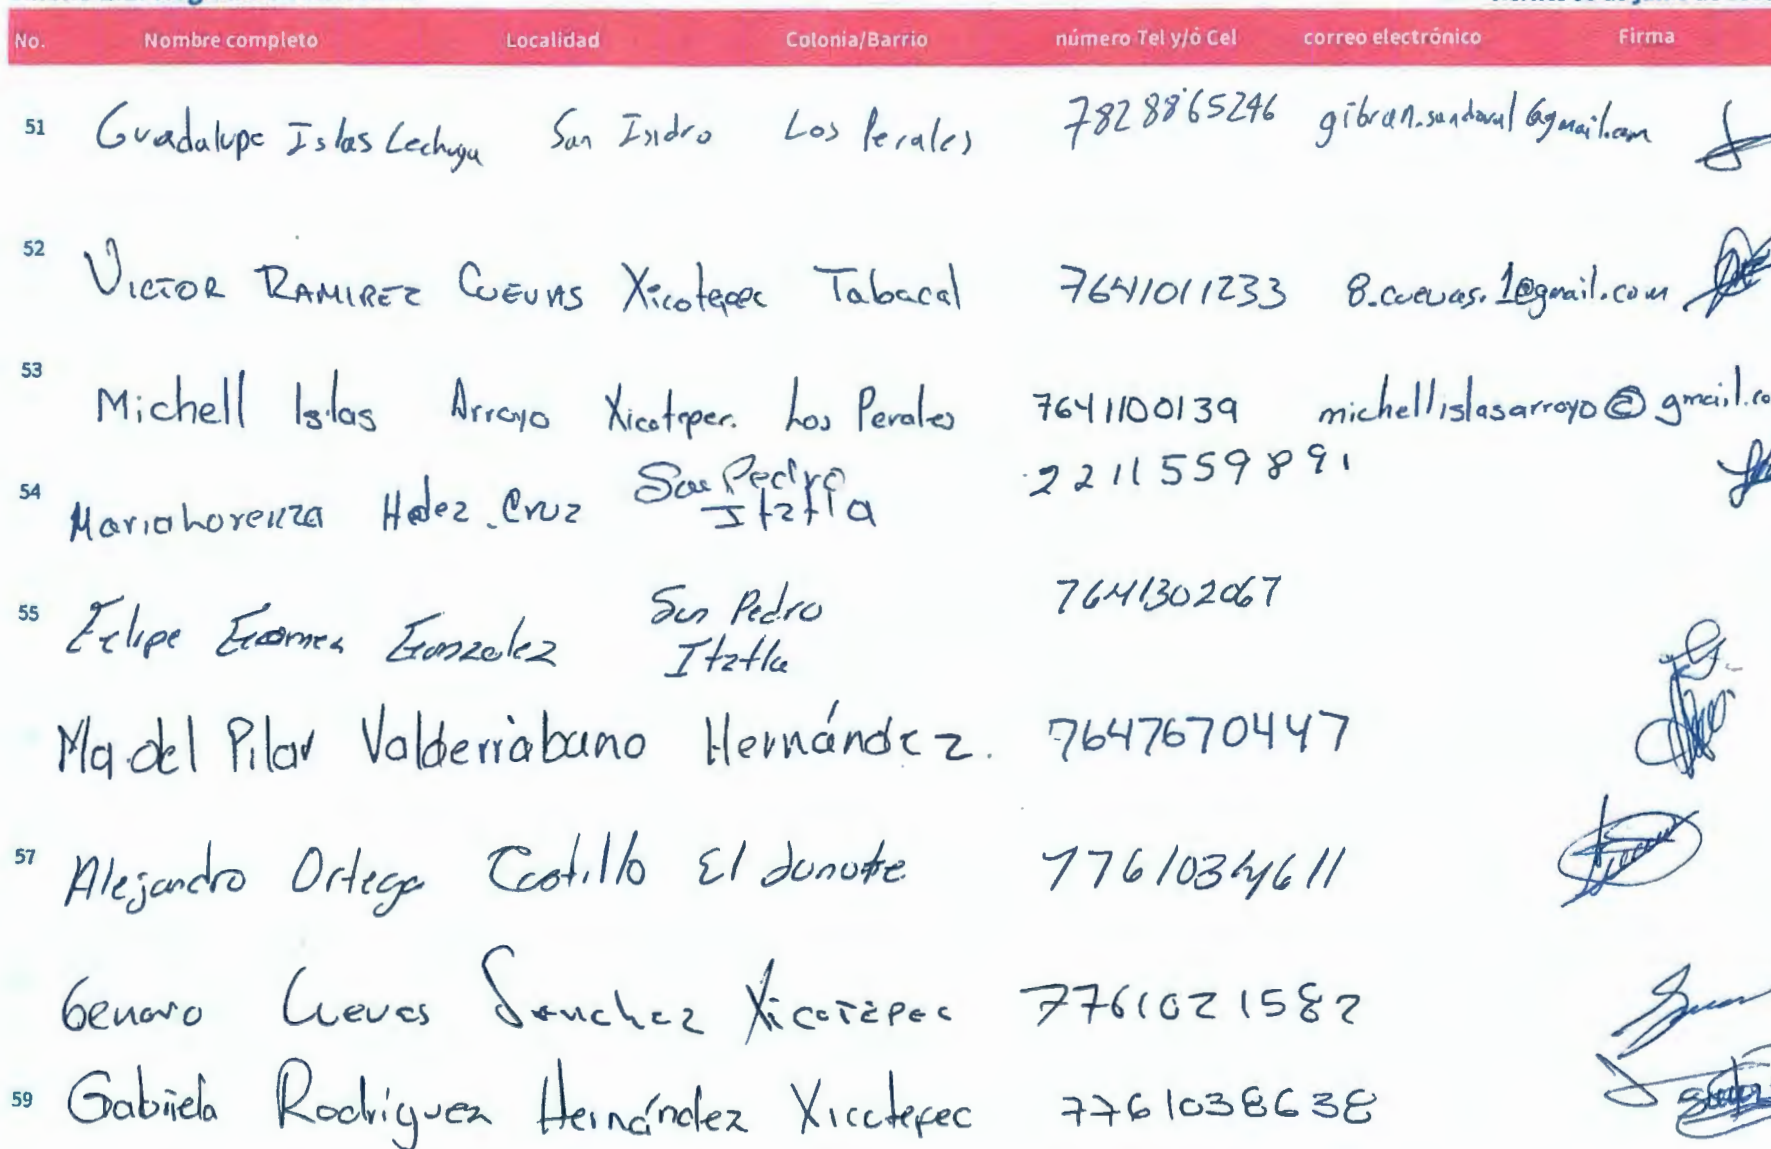 No. Nombre completo Localidad Colonia/Barrio número Tel y/ó Cel correo electrónico Firma
51 Guadalupe Islas Lechuga San Isidro Los Perales 7828865246 gibran.sandoval@gmail.com
52 VICTOR RAMIREZ CUEVAS Xicotepec Tabacal 7641011233 8.cuevas.1@gmail.com
53 Michell Islas Arroyo Xicotepec. Los Perales 7641100139 michellislasarroyo@gmail.co
54 Maria Lorenza Hdez. Cruz San Pedro Itztla 2211559891
55 Felipe Gomez Gonzalez San Pedro Itztla 7641302067
Ma. del Pilar Valderrabano Hernández. 7647670447
57 Alejandro Ortega Castillo El 7761034611
Genaro Cuevas Sanchez Xicotepec 7761021582
59 Gabriela Rodríguez Hernández Xicotepec 7761038638